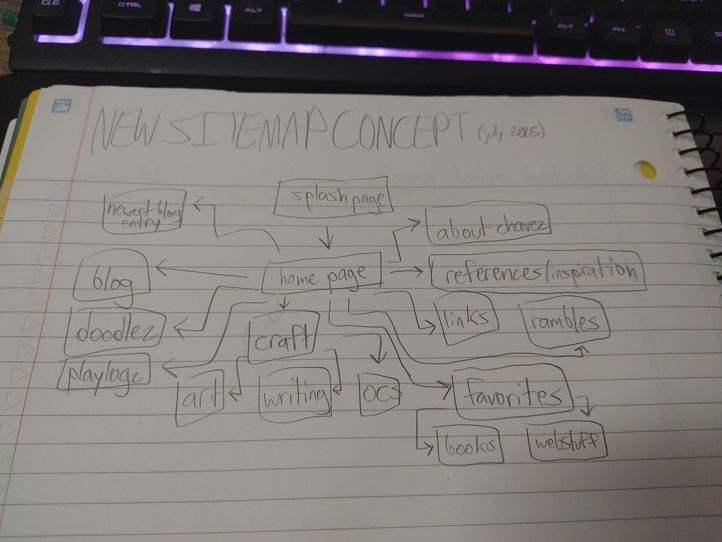 G6
CTRL
ALT
ALT
FN
NEW SITEMAP CONCEPT (july 2025)
splash page
newest blog
entry
about chavez
blog
home page
references/inspiration
doodlez
links
rambles
craft
playlogz
art
writing
ocs
favorites
books
webstuff